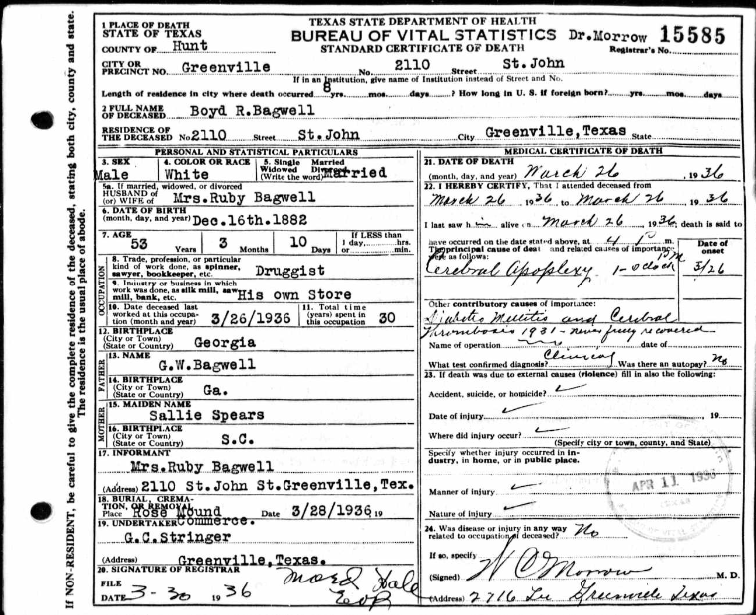 TEXAS STATE DEPARTMENT OF HEALTH
BUREAU OF VITAL STATISTICS Dr.Morrow 15585
STANDARD CERTIFICATE OF DEATH Registrar's No.
1 PLACE OF DEATH
STATE OF TEXAS
COUNTY OF Hunt
CITY OR
PRECINCT NO. Greenville No. 2110 Street St.John
If in an Institution, give name of Institution instead of Street and No.
Length of residence in city where death occurred 8 yrs. mos. days ? How long in U. S. if foreign born? yrs. mos. days
2 FULL NAME
OF DECEASED Boyd R.Bagwell
RESIDENCE OF
THE DECEASED No. 2110 Street St.John City Greenville,Texas State
PERSONAL AND STATISTICAL PARTICULARS
3. SEX Male
4. COLOR OR RACE White
5. Single Married
Widowed Divorced
(Write the word) Married
5a. If married, widowed, or divorced
HUSBAND OF
(or) WIFE of Mrs.Ruby Bagwell
6. DATE OF BIRTH
(month, day, and year) Dec.16th.1882
7. AGE 53 Years 3 Months 10 Days
If LESS than
1 day, hrs.
or min.
OCCUPATION
8. Trade, profession, or particular
kind of work done, as spinner,
sawyer, bookkeeper, etc. Druggist
9. Industry or business in which
work was done, as silk mill, saw
mill, bank, etc. His own Store
10. Date deceased last
worked at this occupa-
tion (month and year) 3/26/1936
11. Total time
(years) spent in
this occupation 30
12. BIRTHPLACE
(City or Town)
(State or Country) Georgia
FATHER
13. NAME
G.W.Bagwell
14. BIRTHPLACE
(City or Town)
(State or Country) Ga.
MOTHER
15. MAIDEN NAME
Sallie Spears
16. BIRTHPLACE
(City or Town)
(State or Country) S.C.
17. INFORMANT
Mrs.Ruby Bagwell
(Address) 2110 St.John St.Greenville,Tex.
18. BURIAL, CREMA-
TION, OR REMOVAL
Place Rose Mound Date 3/28/1936 19
Commerce.
19. UNDERTAKER
G.C.Stringer
(Address) Greenville,Texas.
20. SIGNATURE OF REGISTRAR
FILE
DATE 3-30 1936
MEDICAL CERTIFICATE OF DEATH
21. DATE OF DEATH
(month, day, and year) March 26, 1936
22. I HEREBY CERTIFY, That I attended deceased from
March 26 1936, to March 26 1936
I last saw him alive on March 26 1936, death is said to
have occurred on the date stated above, at m.
The principal cause of death and related causes of importance
were as follows: Date of
onset
Cerebral Apoplexy 1-oclock PM 3/26
Other contributory causes of importance:
Diabetes Mellitis and Cerebral
Thrombosis 1931 - never fully recovered
Name of operation date of
What test confirmed diagnosis? Clinical Was there an autopsy? No
23. If death was due to external causes (violence) fill in also the following:
Accident, suicide, or homicide?
Date of injury , 19
Where did injury occur?
(Specify city or town, county, and State)
Specify whether injury occurred in in-
dustry, in home, or in public place.
Manner of injury
Nature of injury
APR 11 1936
24. Was disease or injury in any way
related to occupation of deceased? No
If so, specify
(Signed) W C Morrow M. D.
(Address) 2716 Lee Greenville Texas
If NON-RESIDENT, be careful to give the complete residence of the deceased, stating both city, county and state.
The residence is the usual place of abode.